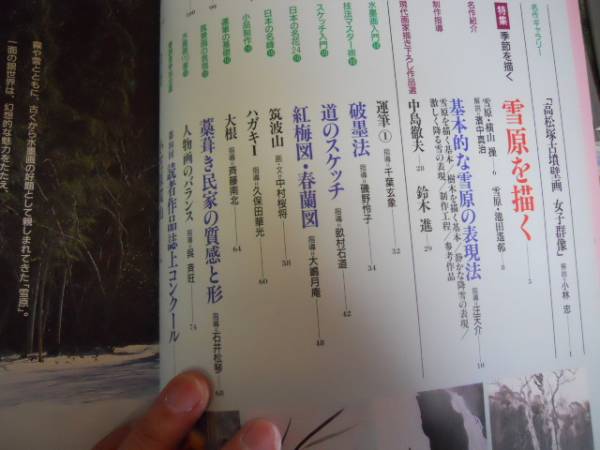 名作ギャラリー
「高松塚古墳壁画 女子群像」 解説・小林 忠 1
特集 季節を描く
雪原を描く 5
名作紹介
雪原・横山 操 6 雪原・池田遙邨 8
解説・濱中真治
制作指導
基本的な雪原の表現法 指導・汪天介 10
雪原を描く基本/樹木を描く基本/静かな降雪の表現/
激しく降る雪の表現/制作工程/参考作品
現代画家描き下ろし作品選
中島徹夫 28 鈴木 進 29
技法マスター術
運筆① 指導・千葉玄象 32
水墨画入門
破墨法 指導・磯野怜子 34
スケッチ入門
道のスケッチ 指導・畝村石道 42
日本の名花
紅梅図・春蘭図 指導・大嶋月庵 48
日本の名峰
筑波山 画・文・中村桜将 58
小品制作
ハガキ 指導・久保田華光 60
運筆の基礎
大根 指導・斉藤南北 64
風景画の表現
藁葺き民家の質感と形 指導・石井松琴 68
人物画のバランス 指導・呉 斉旺 74
読者作品誌上コンクール
霧や雪とともに、古くから水墨画の好題として親しまれてきた「雪原」。
一面の銀世界は、幻想的な魅力をたたえ、